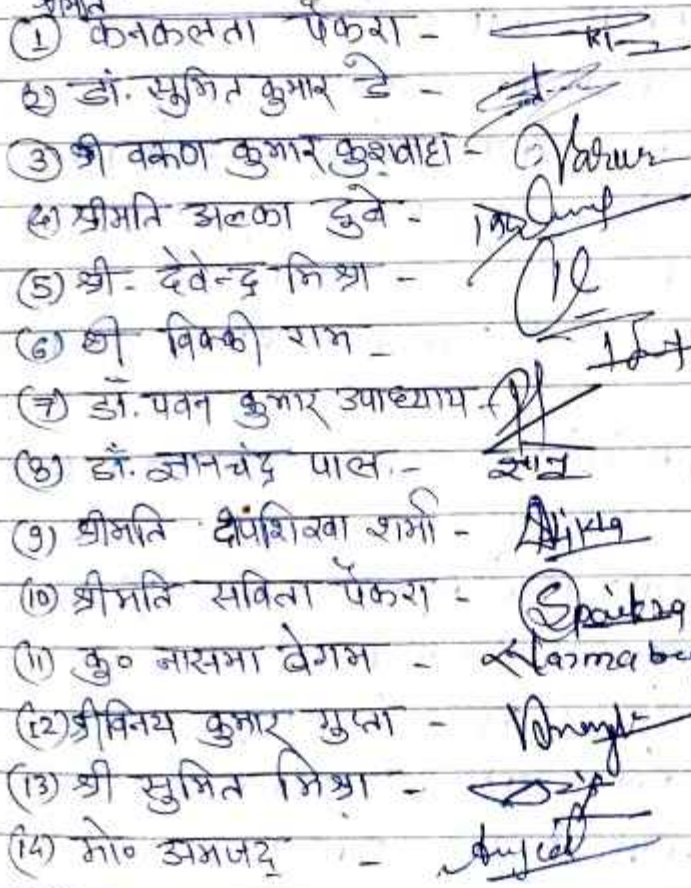 श्रीमति
(1) कनकलता पैकरा -
(2) डॉ. सुमित कुमार डे -
(3) श्री वरूण कुमार कुशवाहा - Varun
(4) श्रीमति अल्का दुबे -
(5) श्री - देवेन्द्र मिश्रा -
(6) श्री विक्की राम -
(7) डॉ. पवन कुमार उपाध्याय -
(8) डॉ. ज्ञानचंद्र पाल. - ज्ञान
(9) श्रीमति दीपशिखा शर्मा -
(10) श्रीमति सविता पैकरा - Spaikra
(11) कु० नासमा बेगम - Nasma be
(12) श्री विनय कुमार गुप्ता -
(13) श्री सुमित मिश्रा -
(14) मो० अमजद -